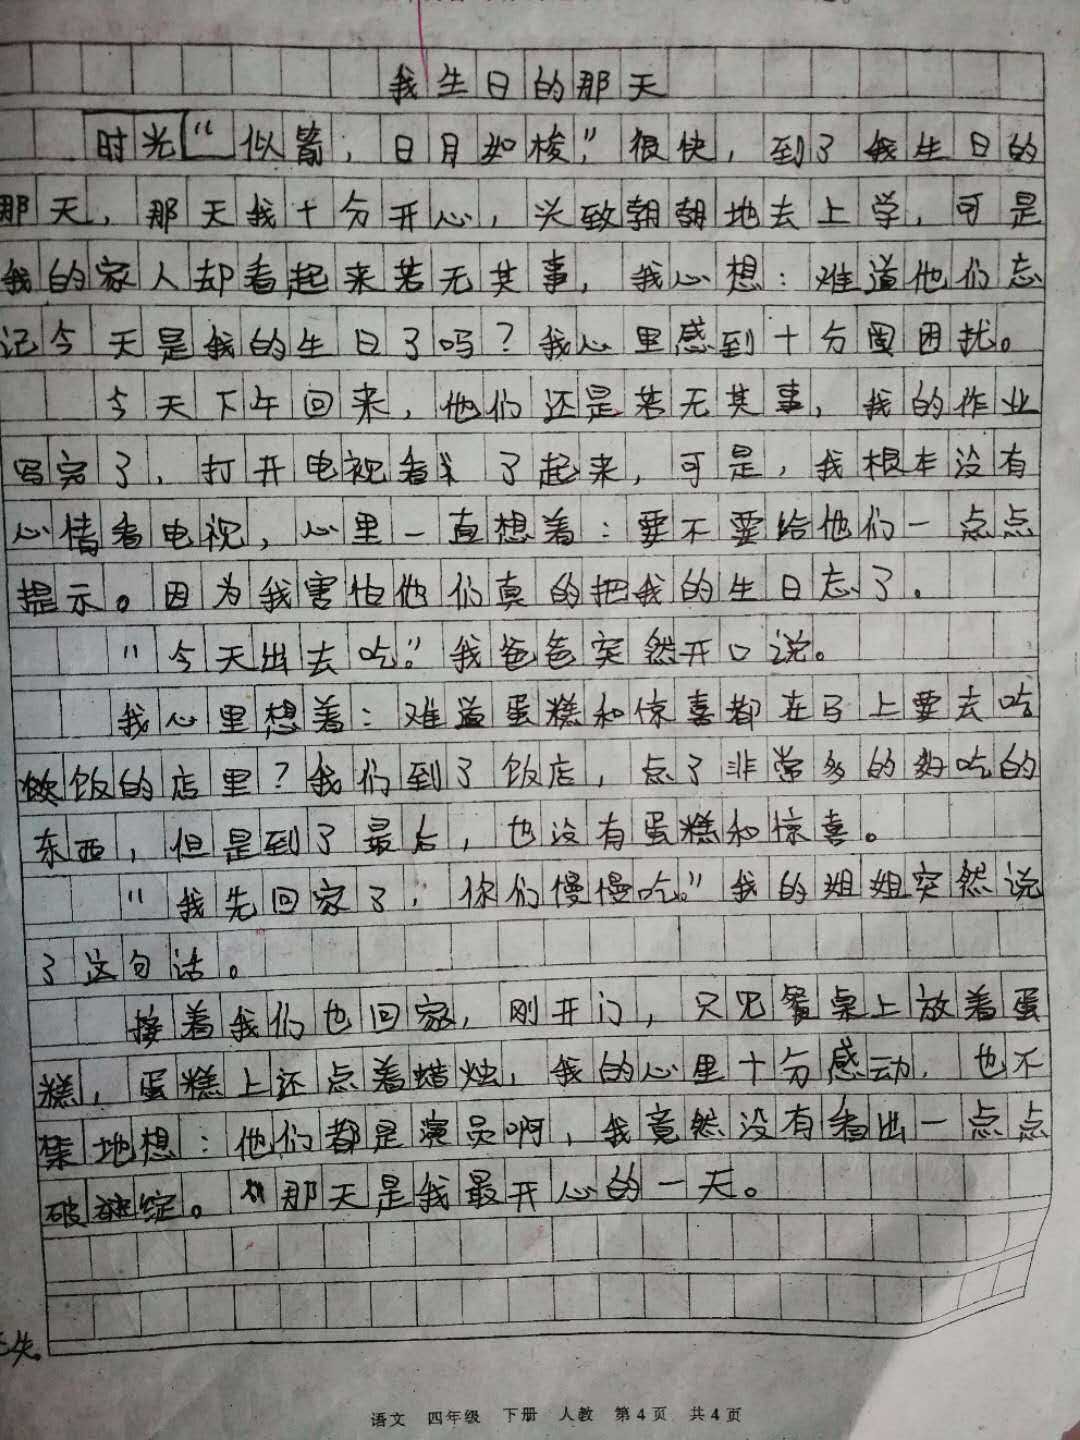 我生日的那天
时光“似箭，日月如梭，”很快，到了我生日的
那天，那天我十分开心，兴致朝朝地去上学，可是
我的家人却看起来若无其事，我心想：难道他们忘
记今天是我的生日了吗？我心里感到十分困扰。
今天下午回来，他们还是若无其事，我的作业
写完了，打开电视看了起来，可是，我根本没有
心情看电视，心里一直想着：要不要给他们一点点
提示。因为我害怕他们真的把我的生日忘了。
“今天出去吃。”我爸爸突然开口说。
我心里想着：难道蛋糕和惊喜都在马上要去吃
饭的店里？我们到了饭店，点了非常多的好吃的
东西，但是到了最后，也没有蛋糕和惊喜。
“我先回家了，你们慢慢吃。”我的姐姐突然说
了这句话。
接着我们也回家，刚开门，只见餐桌上放着蛋
糕，蛋糕上还点着蜡烛，我的心里十分感动，也不
禁地想：他们都是演员啊，我竟然没有看出一点点
破绽。那天是我最开心的一天。
失。
语文 四年级 下册 人教 第4页 共4页